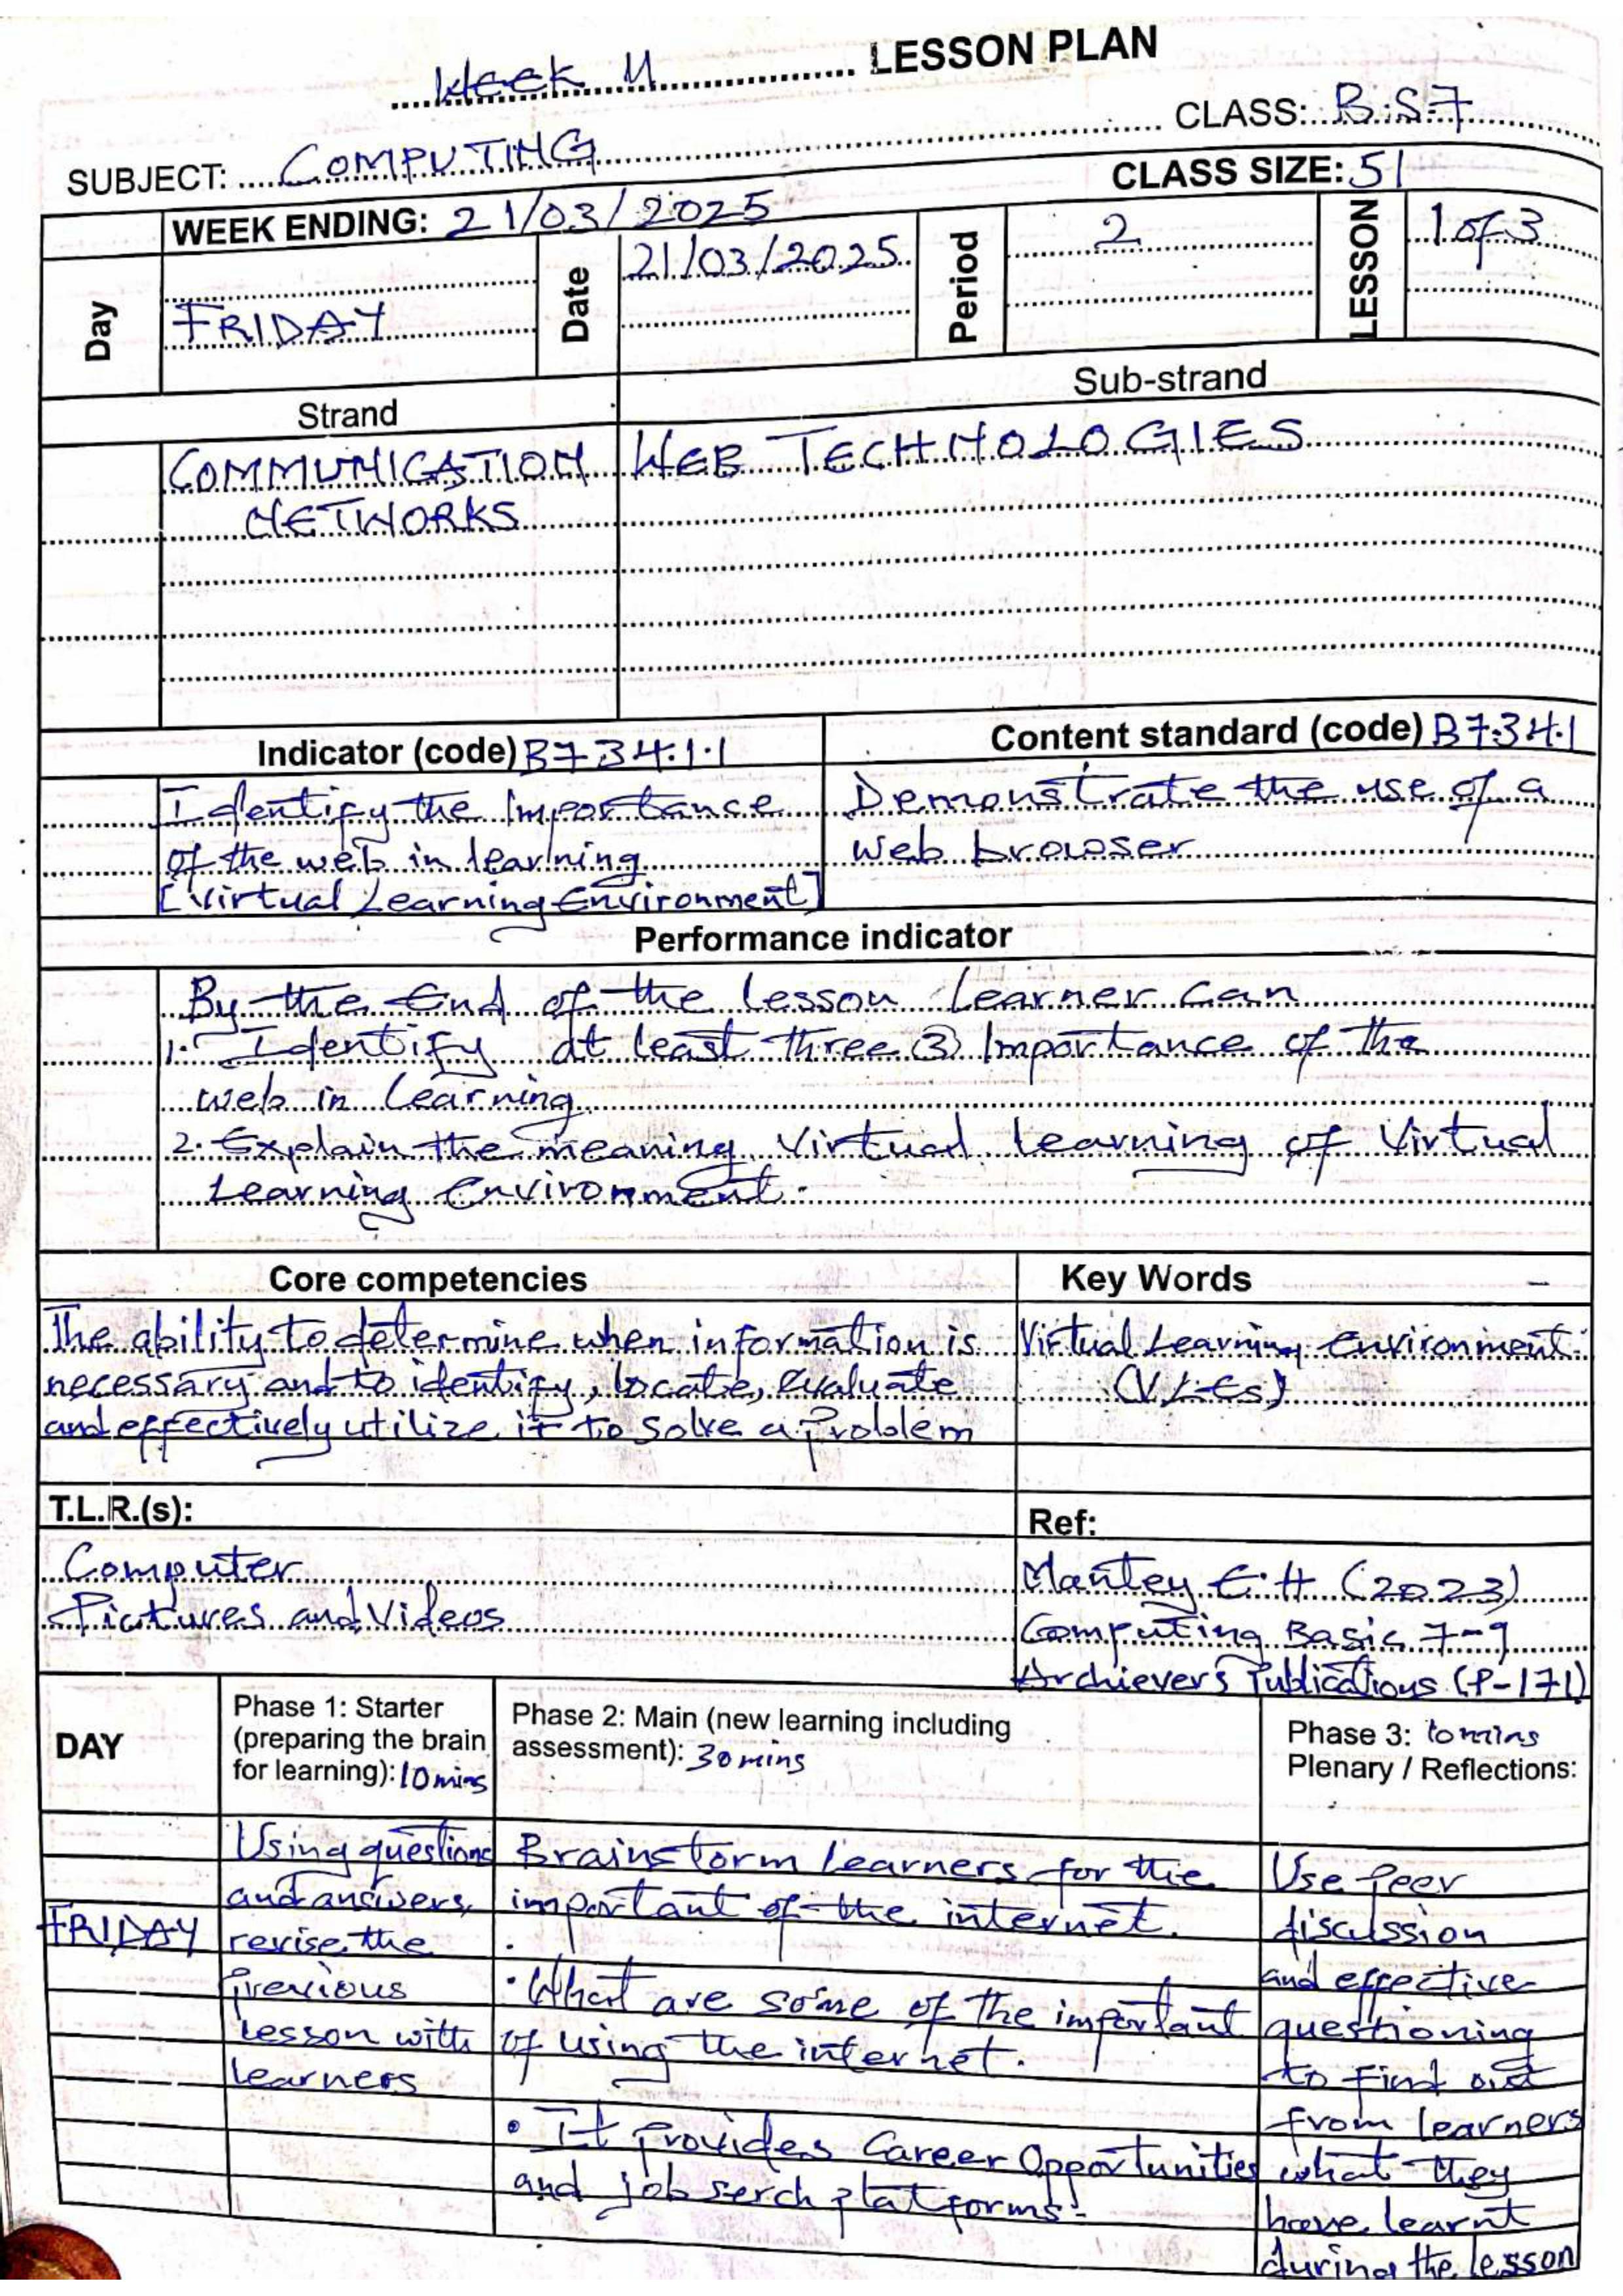 Week 11 LESSON PLAN
SUBJECT: COMPUTING CLASS: B.S.7
CLASS SIZE: 51
WEEK ENDING: 21/03/2025
Day FRIDAY Date 21/03/2025 Period 2 LESSON 1 of 3
Strand Sub-strand
COMMUNICATION WEB TECHNOLOGIES
NETWORKS
Indicator (code) B7.3.4.1.1 Content standard (code) B7.3.4.1
Identify the importance Demonstrate the use of a
of the web in learning web browser
[Virtual Learning Environment]
Performance indicator
By the End of the lesson learner can
1. Identify at least three (3) Importance of the
web in learning
2. Explain the meaning virtual learning of Virtual
Learning Environment.
Core competencies Key Words
The ability to determine when information is Virtual Learning Environment
necessary and to identify, locate, evaluate (VLEs)
and effectively utilize it to solve a problem
T.L.R.(s): Ref:
Computer Mantey E.H (2023)
Pictures and Videos Computing Basic 7-9
Archiever's Publications (P-171)
DAY
Phase 1: Starter
(preparing the brain
for learning): 10mins
Phase 2: Main (new learning including
assessment): 30 mins
Phase 3: 10 mins
Plenary / Reflections:
FRIDAY
Using questions
and answers,
revise the
previous
lesson with
learners
Brainstorm learners for the
important of the internet.
• What are some of the important
of using the internet.
• It provides Career Opportunities
and job serch platforms.
Use Peer
discussion
and effective
questioning
to find out
from learners
what they
have learnt
during the lesson